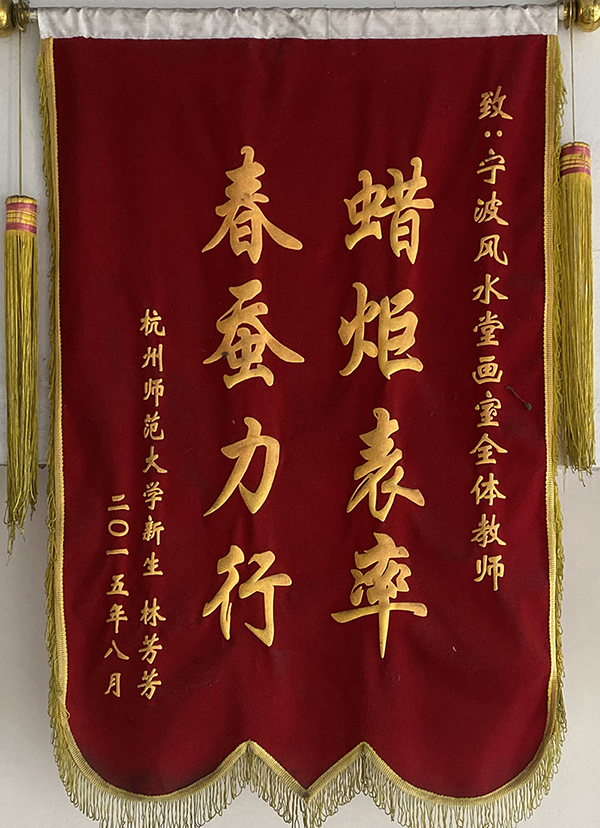 致：宁波风水堂画室全体教师
蜡炬表率
春蚕力行
杭州师范大学新生 林芳芳
二〇一五年八月